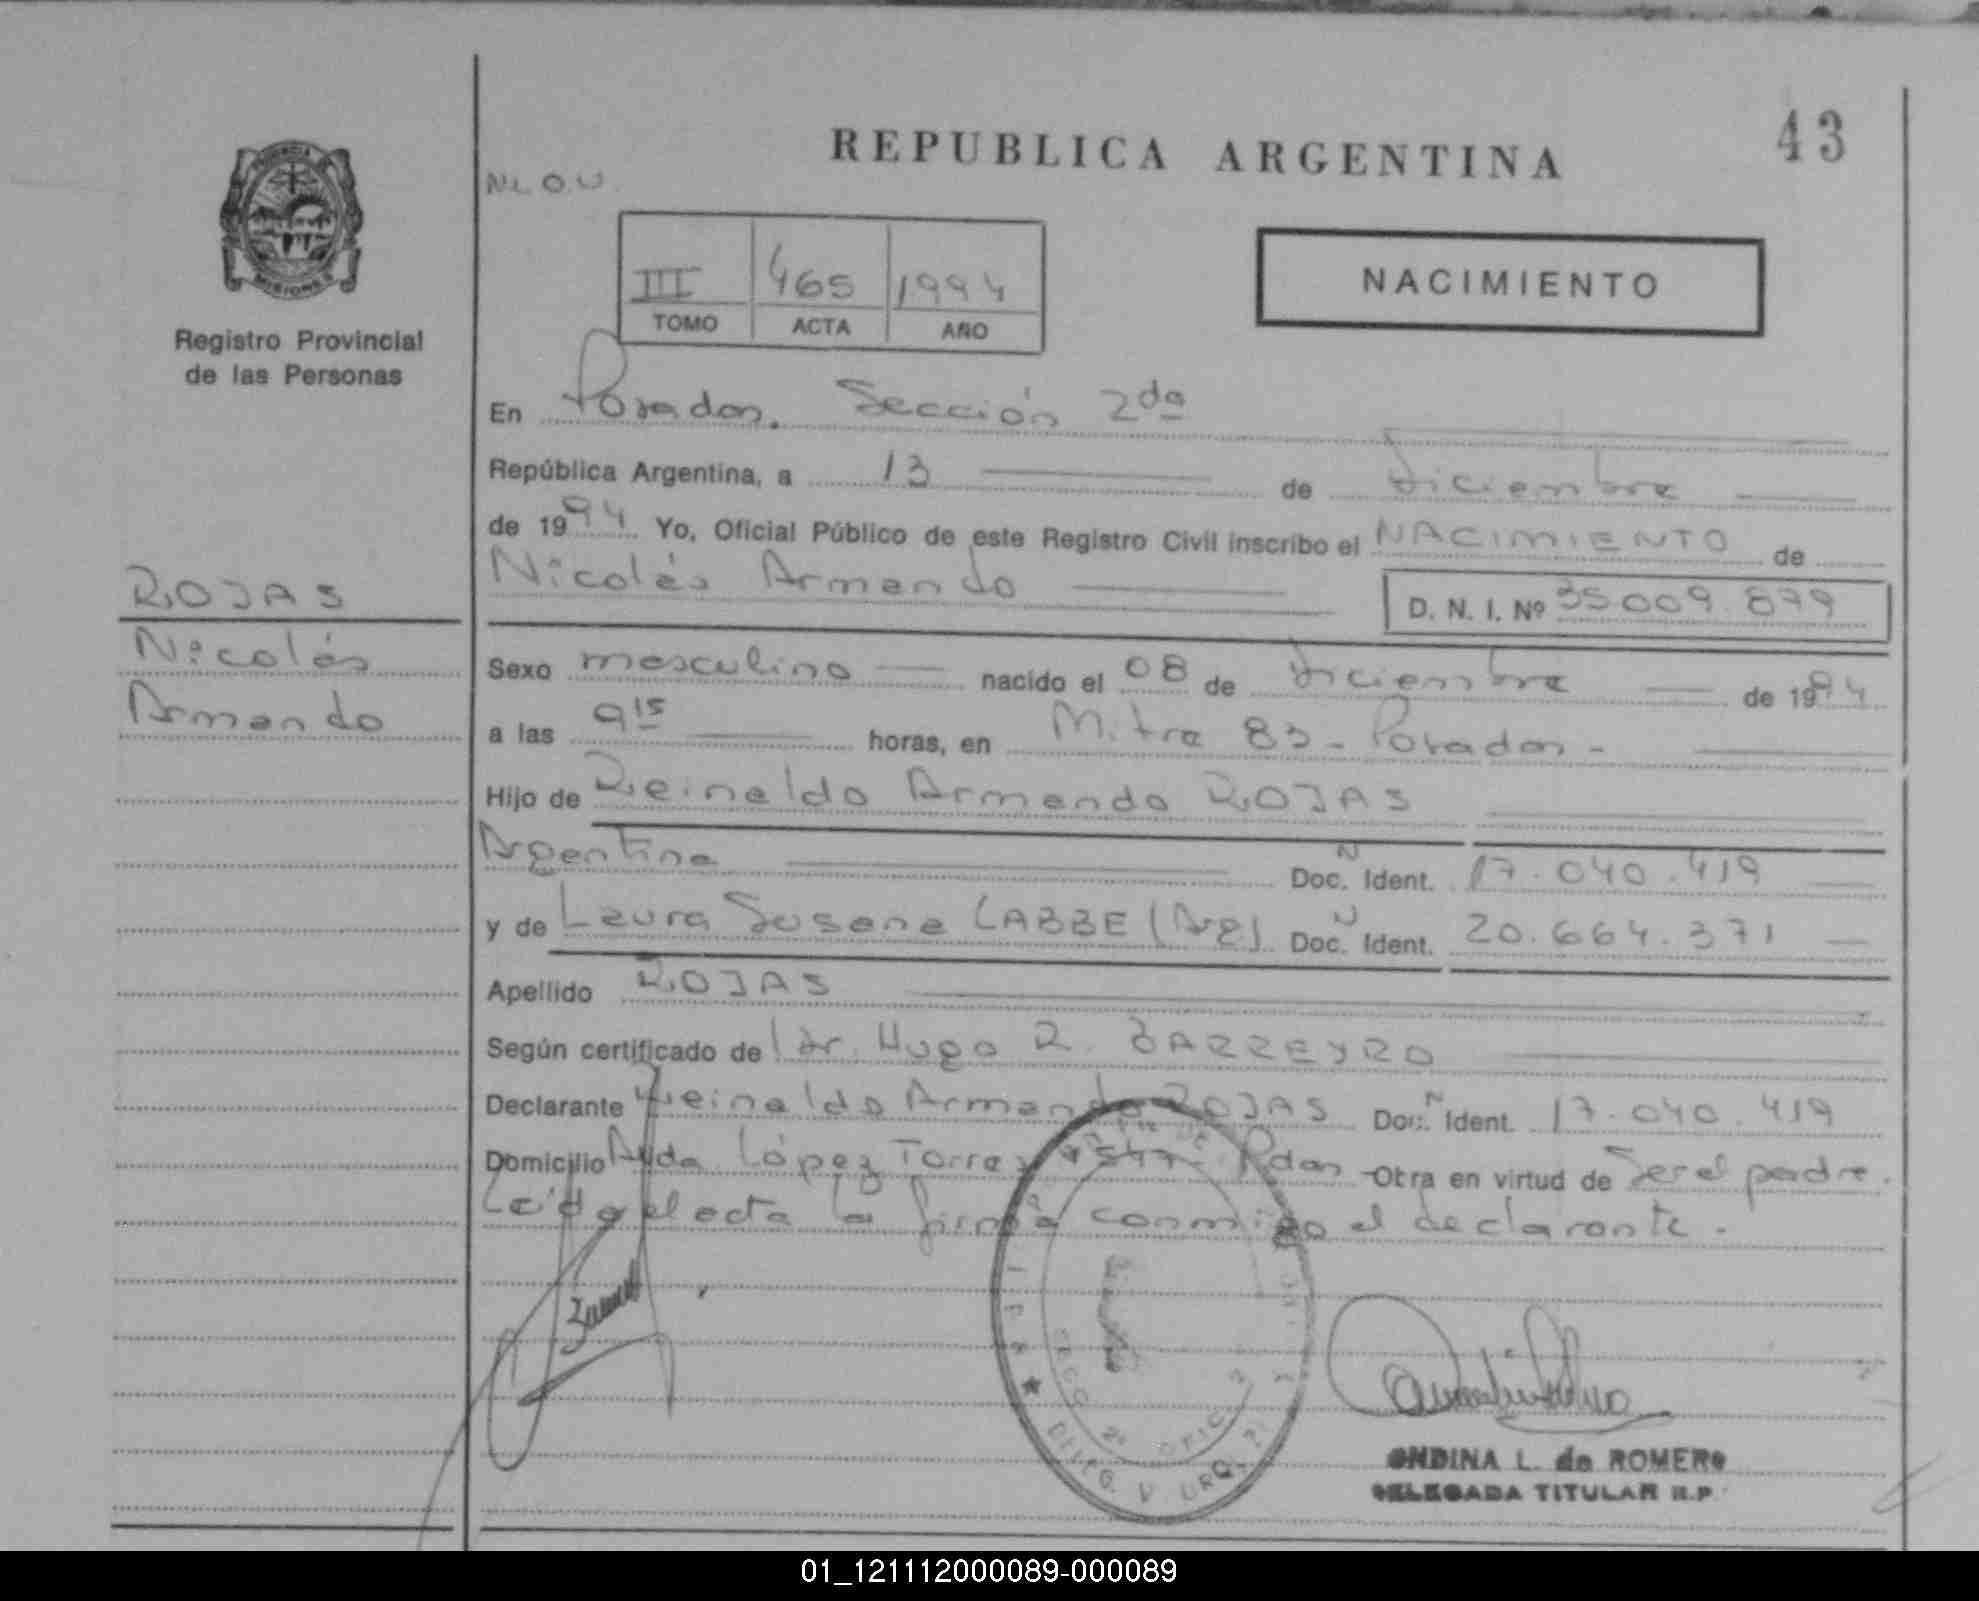 REPUBLICA ARGENTINA
43
PROVINCIA DE
MISIONES
Registro Provincial
de las Personas
III 465 1994
TOMO ACTA AÑO
NACIMIENTO
En Posadas. Sección 2da
República Argentina, a 13 de diciembre
de 1994 Yo, Oficial Público de este Registro Civil inscribo el NACIMIENTO de
Nicolás Armando
D. N. I. Nº 35 009.899
ROJAS
Nicolás
Armando
Sexo masculino nacido el 08 de diciembre de 1994
a las 9 15 horas, en Mitre 83 - Posadas -
Hijo de Reinaldo Armando ROJAS
Argentina Doc. N Ident. 17.040.419
y de Laura Susana LABBE (Arg). Doc. N Ident. 20.664.371
Apellido ROJAS
Según certificado de Dr. Hugo R. BARREYRO
Declarante Reinaldo Armando ROJAS Doc. N Ident. 17.040.419
Domicilio Avda. López Torres Pdas. Otra en virtud de Ser el padre.
Leída el acta la firma conmigo el declarante.
SECC. 2ª OFIC.
DELEG. V. URQ.
ONDINA L. de ROMERO
DELEGADA TITULAR R.P.
01_121112000089-000089